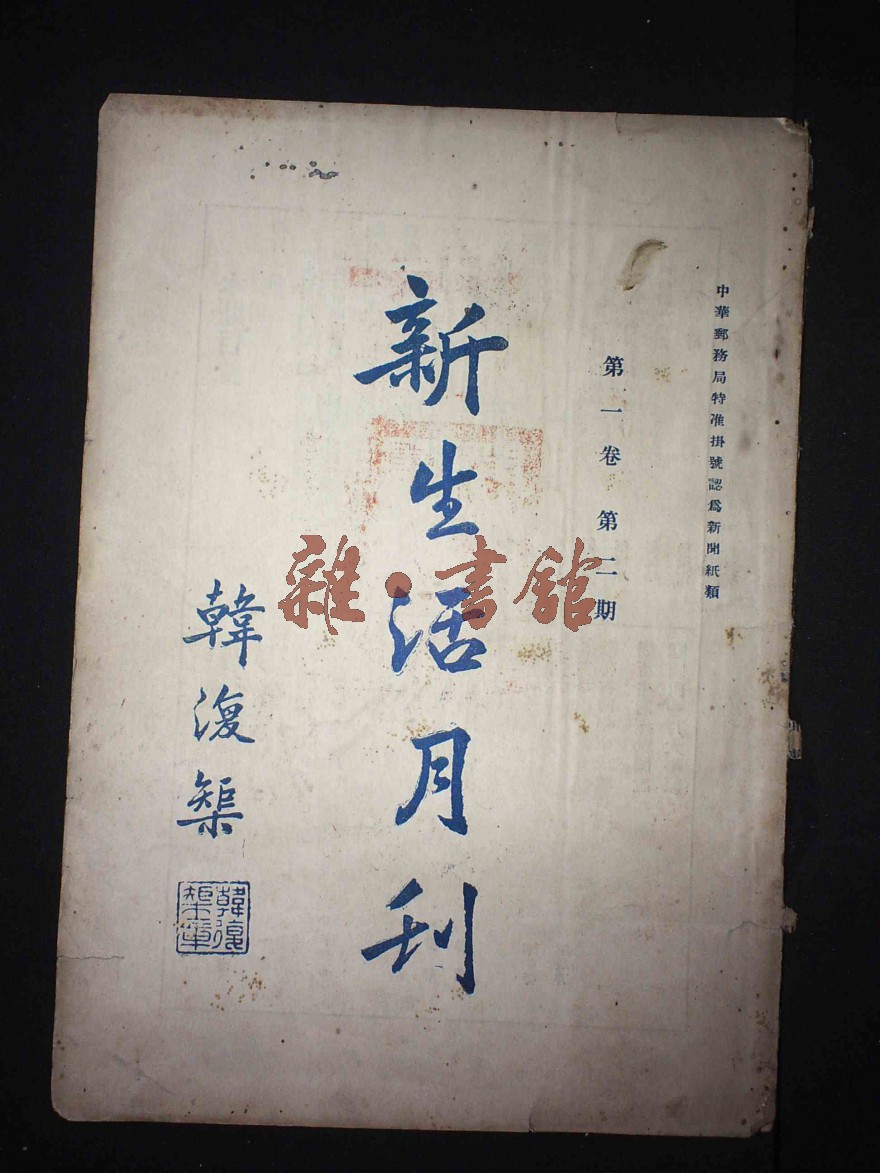 中華郵務局特准掛號認爲新聞紙類
第一卷 第二期
新生活月刊
韓復榘
韓復榘章
雜·書館